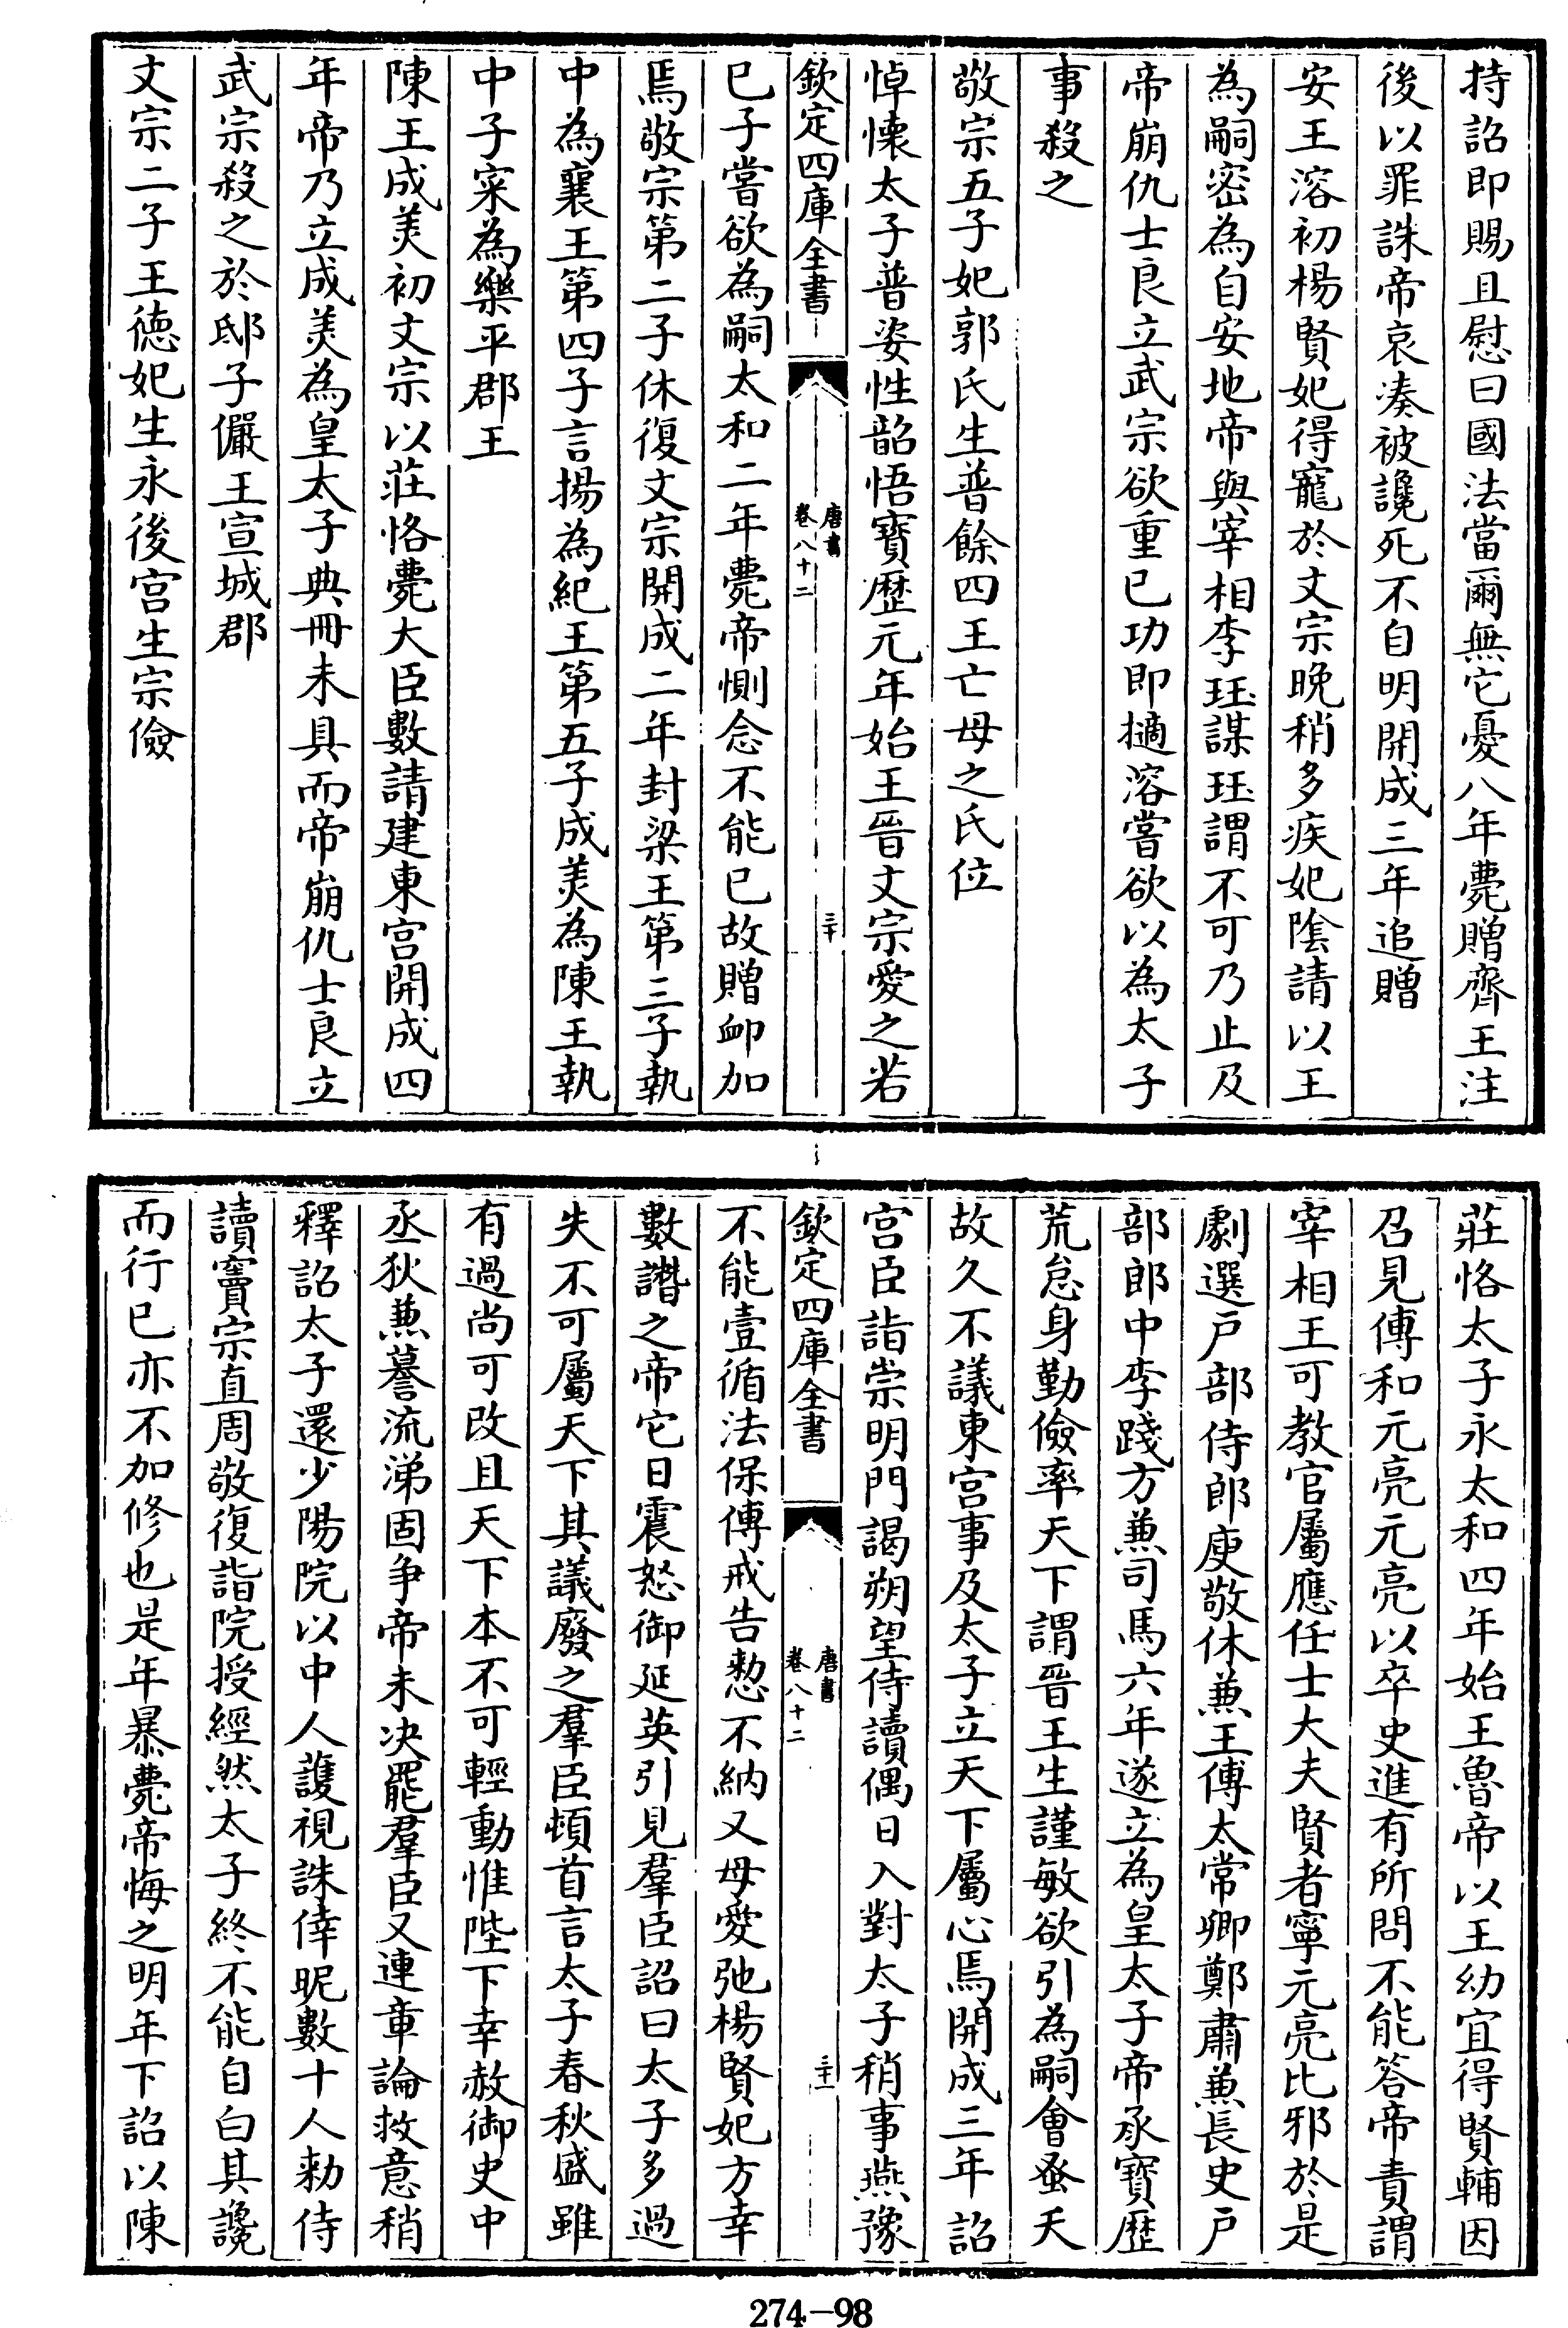 持詔即賜且慰曰國法當爾無它憂八年薨贈齊王注
後以罪誅帝哀湊被讒死不自明開成三年追贈
安王溶初楊賢妃得寵於文宗晚稍多疾妃陰請以王
為嗣密為自安地帝與宰相李珏謀珏謂不可乃止及
帝崩仇士良立武宗欲重已功即擿溶嘗欲以為太子
事殺之
敬宗五子妃郭氏生普餘四王亡母之氏位
悼懷太子普姿性韶悟寶歷元年始王晉文宗愛之若
欽定四庫全書
唐書
卷八十二
三十
已子嘗欲為嗣太和二年薨帝惻念不能已故贈卹加
焉敬宗第二子休復文宗開成二年封梁王第三子執
中為襄王第四子言揚為紀王第五子成美為陳王執
中子寀為樂平郡王
陳王成美初文宗以莊恪薨大臣數請建東宫開成四
年帝乃立成美為皇太子典冊未具而帝崩仇士良立
武宗殺之於邸子儼王宣城郡
文宗二子王德妃生永後宫生宗儉
莊恪太子永太和四年始王魯帝以王幼宜得賢輔因
召見傅和元亮元亮以卒史進有所問不能答帝責謂
宰相王可教官屬應任士大夫賢者寧元亮比邪於是
劇選户部侍郎庾敬休兼王傅太常卿鄭肅兼長史户
部郎中李踐方兼司馬六年遂立為皇太子帝承寶歷
荒怠身勤儉率天下謂晉王生謹敏欲引為嗣會蚤夭
故久不議東宫事及太子立天下屬心焉開成三年詔
宫臣詣崇明門謁朔望侍讀偶日入對太子稍事燕豫
欽定四庫全書
唐書
卷八十二
三十一
不能壹循法保傅戒告愸不納又母愛弛楊賢妃方幸
數譖之帝它日震怒御延英引見羣臣詔曰太子多過
失不可屬天下其議廢之羣臣頓首言太子春秋盛雖
有過尚可改且天下本不可輕動惟陛下幸赦御史中
丞狄兼謩流涕固争帝未決罷羣臣又連章論救意稍
釋詔太子還少陽院以中人護視誅倖昵數十人敕侍
讀竇宗直周敬復詣院授經然太子終不能自白其讒
而行已亦不加修也是年暴薨帝悔之明年下詔以陳
274-98